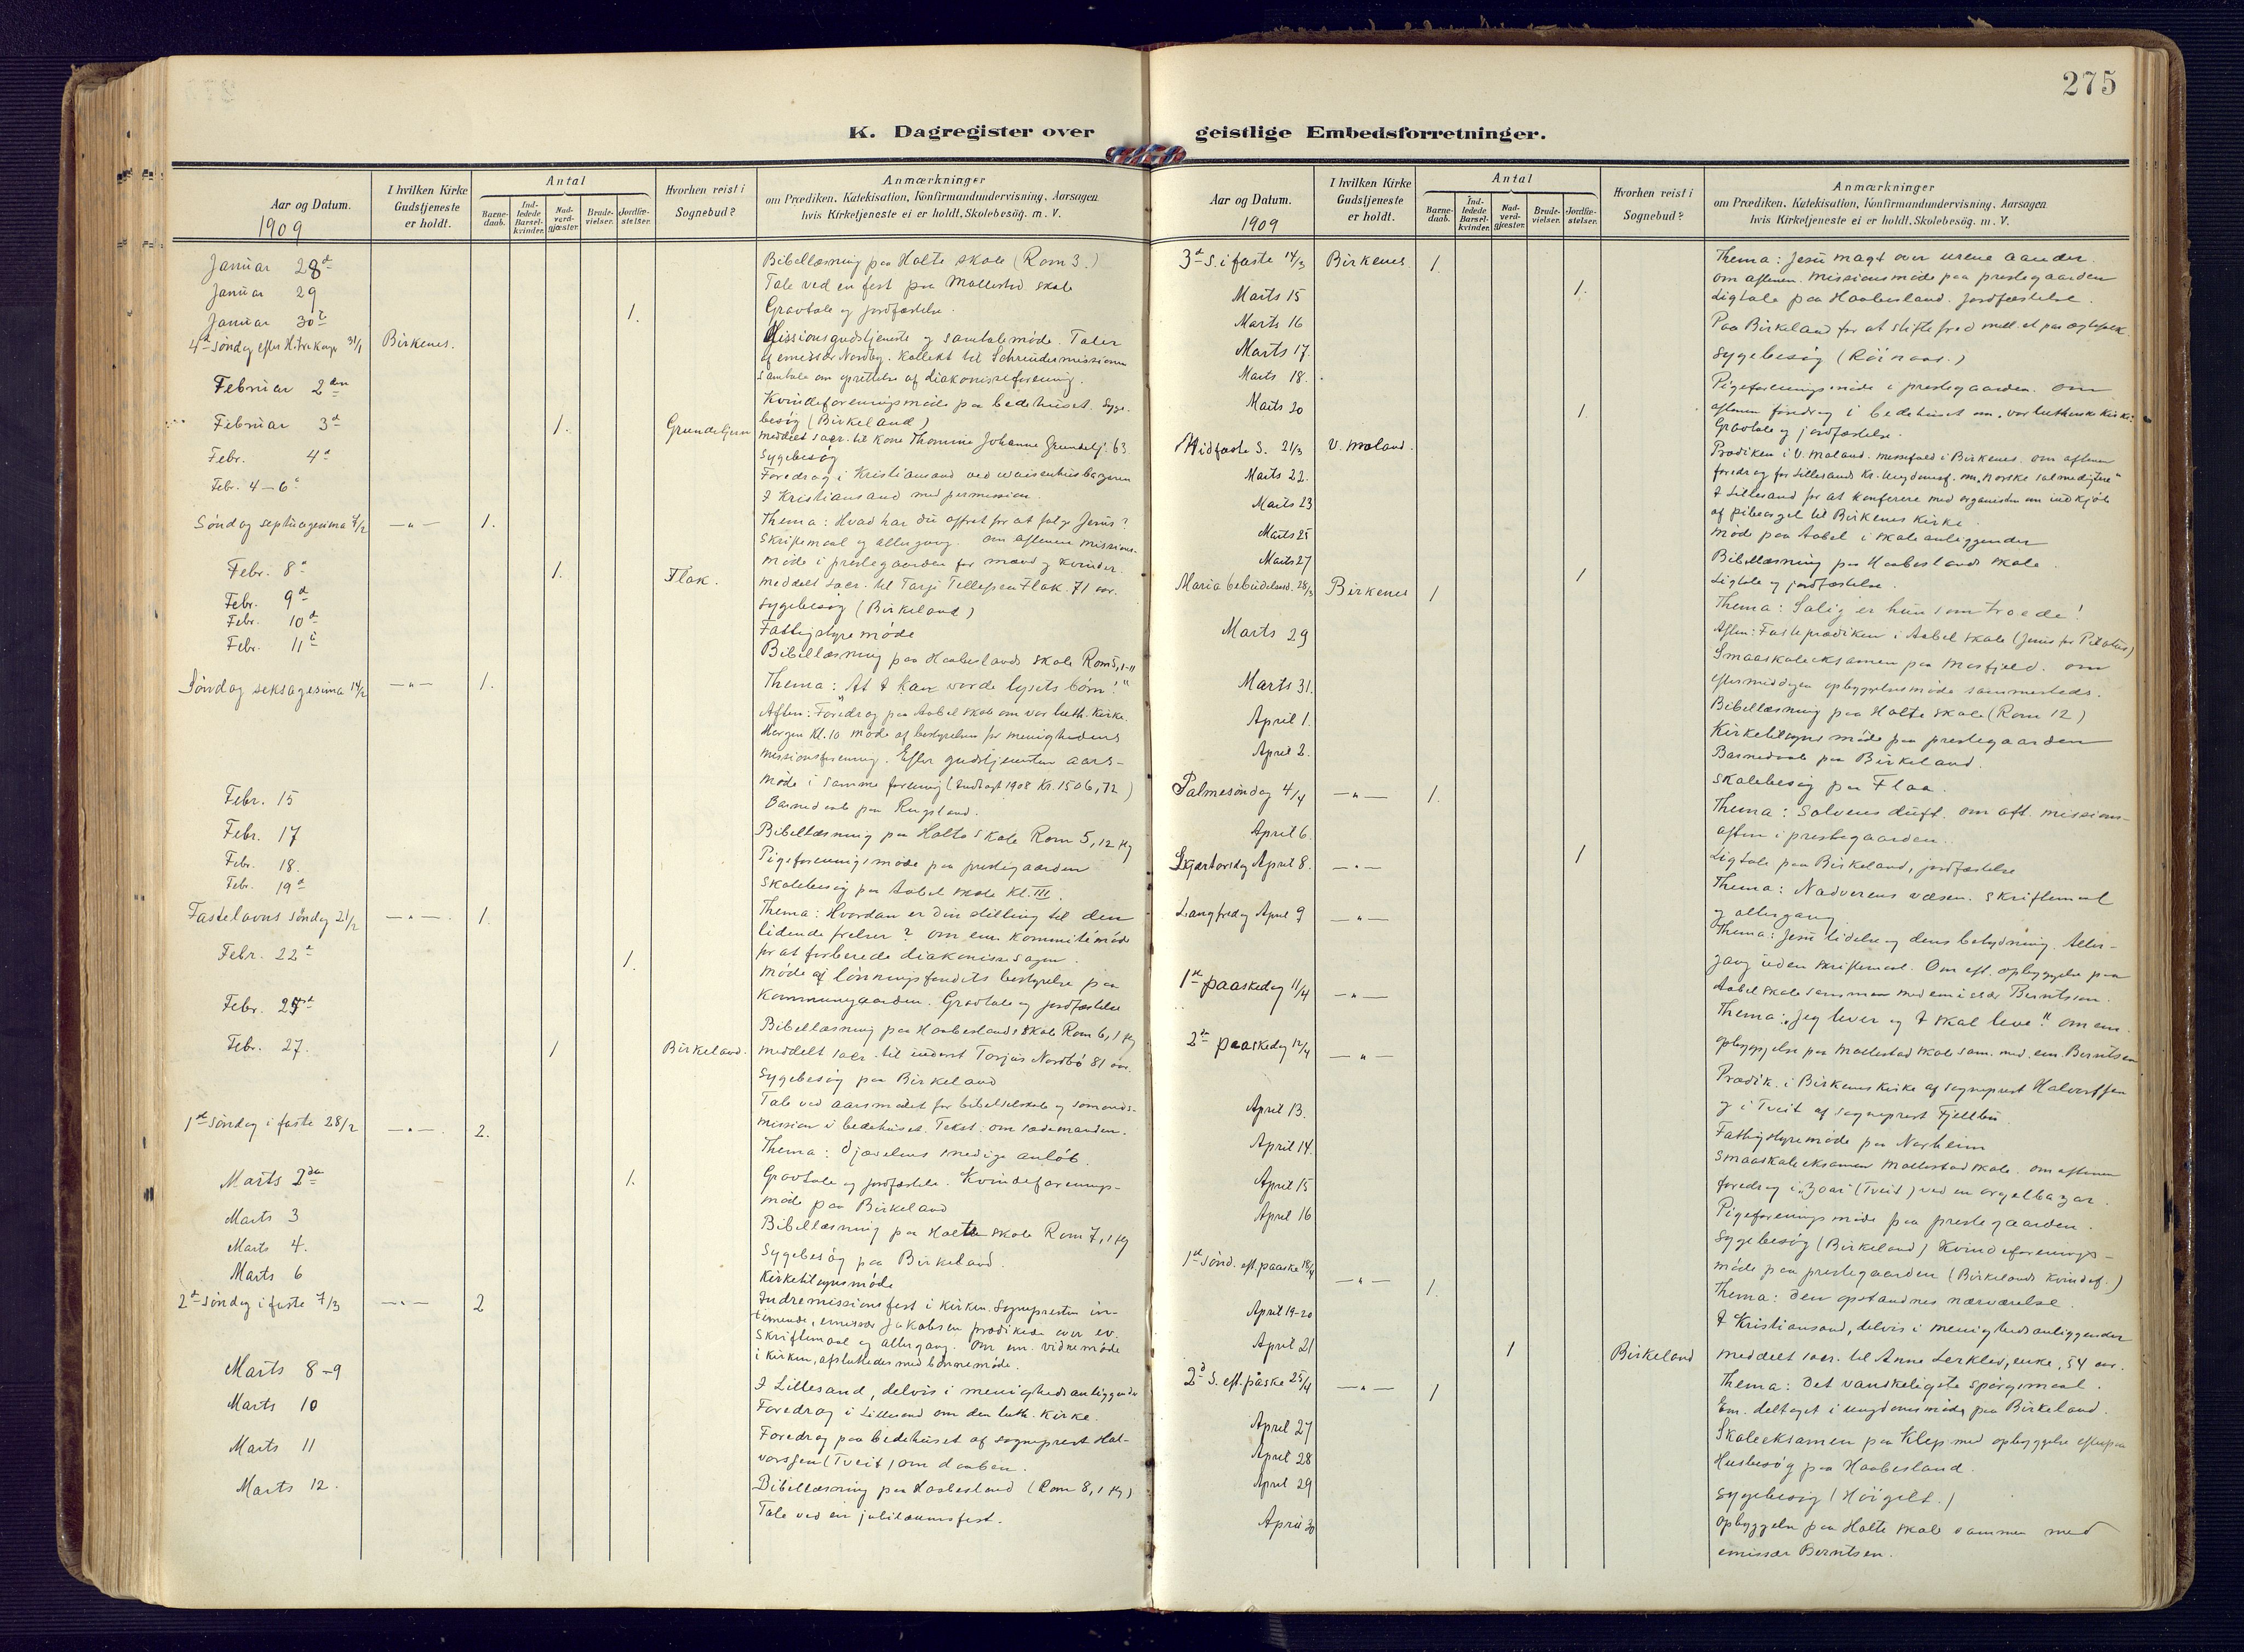 275
K. Dagregister over geistlige Embedsforretninger.
Aar og Datum.
1909
I hvilken Kirke Gudstjeneste er holdt.
Antal
Barne-daab.
Ind-ledede Barsel-kvinder.
Nad-verd-gjæster.
Brude-vielser.
Jordfæ-stelser.
Hvorhen reist i Sognebud?
Anmærkninger
om Prædiken, Katekisation, Konfirmandundervisning, Aarsagen
hvis Kirketjeneste ei er holdt, Skolebesøg. m. V.
Januar 28d Bibellæsning paa Holte skole (Rom 3.)
Januar 29 Tale ved en fest paa Mollestad skole
Januar 30 1. Gravtale og jordfæstelse.
4de søndag efter H. tre konger 31/1 Birkenes. Missionsgudstjeneste og samtalemøde. Taler
af emissær Nordby. Kollekt til Schreudermissionen
Samtale om oprettelse af diakonisseforening.
Februar 2den Kvindeforeningsmøde paa bedehuset. Syge-
besøg (Birkeland)
Februar 3d 1. meddelt sacr. til kone Thomine Johanne Grundelj. 63.
Febr. 4d Sygebesøg
Febr. 4–6 Foredrag i Kristiansand ved waisenhusbazaren
I Kristiansand med permission.
Søndag septuagesima 7/2 –"– 1. Thema: Hvad har du ofret for at følge Jesus?
Skriftemaal og altergang. Om aftenen missions-
møde i prestegaarden for mænd og kvinder.
Febr. 8d 1. Flak. meddelt sacr. til Tarje Tellefsen Flak. 71 aar.
Febr. 9d Sygebesøg (Birkeland)
Febr. 10d Fattigstyremøde
Febr. 11 Bibellæsning paa Haabesland skole Rom 5, 1-11
Søndag seksagesima 14/2 –"– 1. Thema: "At I kan vorde lysets børn!"
Aften: Foredrag paa Aabel skole om vor luth. kirke.
Morgen Kl. 10 møde af bestyrelsen for menighedens
missionsforening. Efter gudstjenesten aars-
møde i samme forening (Indtægt 1908 Kr. 1506,72)
Febr. 15 Barnedaab paa Rugsland.
Febr. 17 Bibellæsning paa Holte skole Rom 5, 12 flg
Febr. 18. Pigeforeningsmøde paa prestegaarden
Febr. 19d Skolebesøg paa Aabel skole Kl. III.
Fastelavns søndag 21/2 –"– 1. Thema: Hvordan er din stilling til den
lidende frelser? Om em. kommitémøde
for at forberede diakonissesagen.
Febr. 22d 1. Møde af lønningsfondets bestyrelse paa
Kommunegaarden. Gravtale og jordfæstelse
Febr. 25d Bibellæsning paa Haabeslands skole Rom 6, 1 flg
Febr. 27. 1 Birkeland. meddelt sacr. til inderst Torjus Nordbø 81 aar.
Sygebesøg paa Birkeland
Tale ved aarsmødet for bibelselskab og sømands-
mission i bedehuset. Tekst: om sædemanden.
1st søndag i faste 28/2 –"– 2. Thema: Djævelens snedige anløb.
Marts 2den 1. Gravtale og jordfæstelse. Kvindeforenings-
møde paa Birkeland
Marts 3 Bibellæsning paa Holte skole Rom 7, 1 flg
Marts 4. Sygebesøg paa Birkeland.
Marts 6 Kirketilsynsmøde
2d søndag i faste 7/3 –"– 2 Indremissionsfest i kirken. Sognepresten in-
tonerede, emissær Jakobsen prædikede over ev.
Skriftemaal og altergang. Om em. vidnemøde
i kirken, afsluttedes med bønnemøde.
Marts 8–9 I Lillesand, delvis i menighedsanliggender
Marts 10 Foredrag i Lillesand om den luth. kirke.
Marts 11 Foredrag paa bedehuset af sogneprest Hal-
vorssen (Tveit) om daaben.
Marts 12. Bibellæsning paa Haabesland (Rom 8, 1 flg)
Tale ved en jubilæumsfest.
Aar og Datum.
1909
I hvilken Kirke Gudstjeneste er holdt.
Antal
Barne-daab.
Ind-ledede Barsel-kvinder.
Nad-verd-gjæster.
Brude-vielser.
Jordfæ-stelser.
Hvorhen reist i Sognebud?
Anmærkninger
om Prædiken, Katekisation, Konfirmandundervisning, Aarsagen
hvis Kirketjeneste ei er holdt, Skolebesøg. m. V.
3d S. i faste 14/3 Birkenes. 1. Thema: Jesu magt over urene aander.
Om aftenen missionsmøde paa prestegaarden
Marts 15 1. Ligtale paa Haabesland. Jordfæstelse.
Marts 16 Paa Birkeland for at stifte fred mell. et par ægtefolk.
Marts 17. Sygebesøg (Röinaas.)
Marts 18. Pigeforeningsmøde i prestegaarden. Om
aftenen foredrag i bedehuset om "vor lutherske kirke."
Marts 20 1. Gravtale og jordfæstelse.
Midfaste S. 21/3 V. Moland. Prædiken i V. Moland. Messefald i Birkenes. Om aftenen
foredrag for Lillesands Kr. Ungdomsf. om "norske salmedigtere"
Marts 22. I Lillesand for at konferere med organisten om indkjøb
af pibeorgel til Birkenes kirke.
Marts 23 Møde paa Aabel i skoleanliggender
Marts 25 Bibellæsning paa Haabeslands skole.
Marts 27 1 Ligtale og jordfæstelse.
Maria bebudelsesd. 28/3 Birkenes 1 Thema: Salig er hun som troede!
Aften: Fasteprædiken i Aabel skole (Jesus for Pilatus)
Marts 29 Smaaskoleeksamen paa Mosfjeld. Om
eftermiddagen opbyggelsesmøde sammesteds.
Marts 31. Bibellæsning paa Holte skole (Rom 12)
April 1. Kirketilsynsmøde paa prestegaarden
Barnedaab paa Birkeland.
April 2. Skolebesøg paa Flaa.
Palmesøndag 4/4 –"– 1. Thema: Salvens duft. Om aft. missions-
aften i prestegaarden.
April 6. 1 Ligtale paa Birkeland, jordfæstelse
Skjærtorsdag April 8. –"– Thema: Nadverens væsen. Skriftemaal
og altergang.
Langfredag April 9 –"– Thema: Jesu lidelse og dens betydning. Alter-
gang uden skriftemaal. Om eft. opbyggelse paa
Aabel skole sammen med emissær Berntsen.
1st paaskedag 11/4 –"– Thema: "Jeg lever og I skal leve." Om em.
opbyggelse paa Mollestad skole sam. med em. Berntsen
2den paaskedag 12/4 –"– Prædik. i Birkenes kirke af sogneprest Halvorssen
og i Tveit af sogneprest Fjeldbu.
April 13. Fattigstyremøde paa Norheim
April 14. Smaaskoleeksamen Mollestad skole. Om aftenen
foredrag i "Boar" (Tveit) ved en orgelbazar.
April 15 Pigeforeningsmøde paa prestegaarden.
April 16 Sygebesøg (Birkeland) Kvindeforenings-
møde paa prestegaarden (Birkelands Kvindef.)
1st sønd. eft. paaske 18/4 –"– 1. Thema: Den opstandnes nærværelse.
April 19-20 I Kristiansand, delvis i menighedsanliggender
April 21 1 Birkeland meddelt sacr. til Anne Lerklev, enke, 54 aar.
2d S. eft. påske 25/4 –"– 1 Thema: Det vanskeligste spørgsmaal.
Em. deltaget i ungdomsmøde paa Birkeland.
April 27 Skoleeksamen paa Klep med opbyggelse
April 28 Husbesøg paa Haabesland.
April 29 Sygebesøg (Höigilt.)
April 30 Opbyggelse paa Holte skole sammen med
emissær Berntsen.